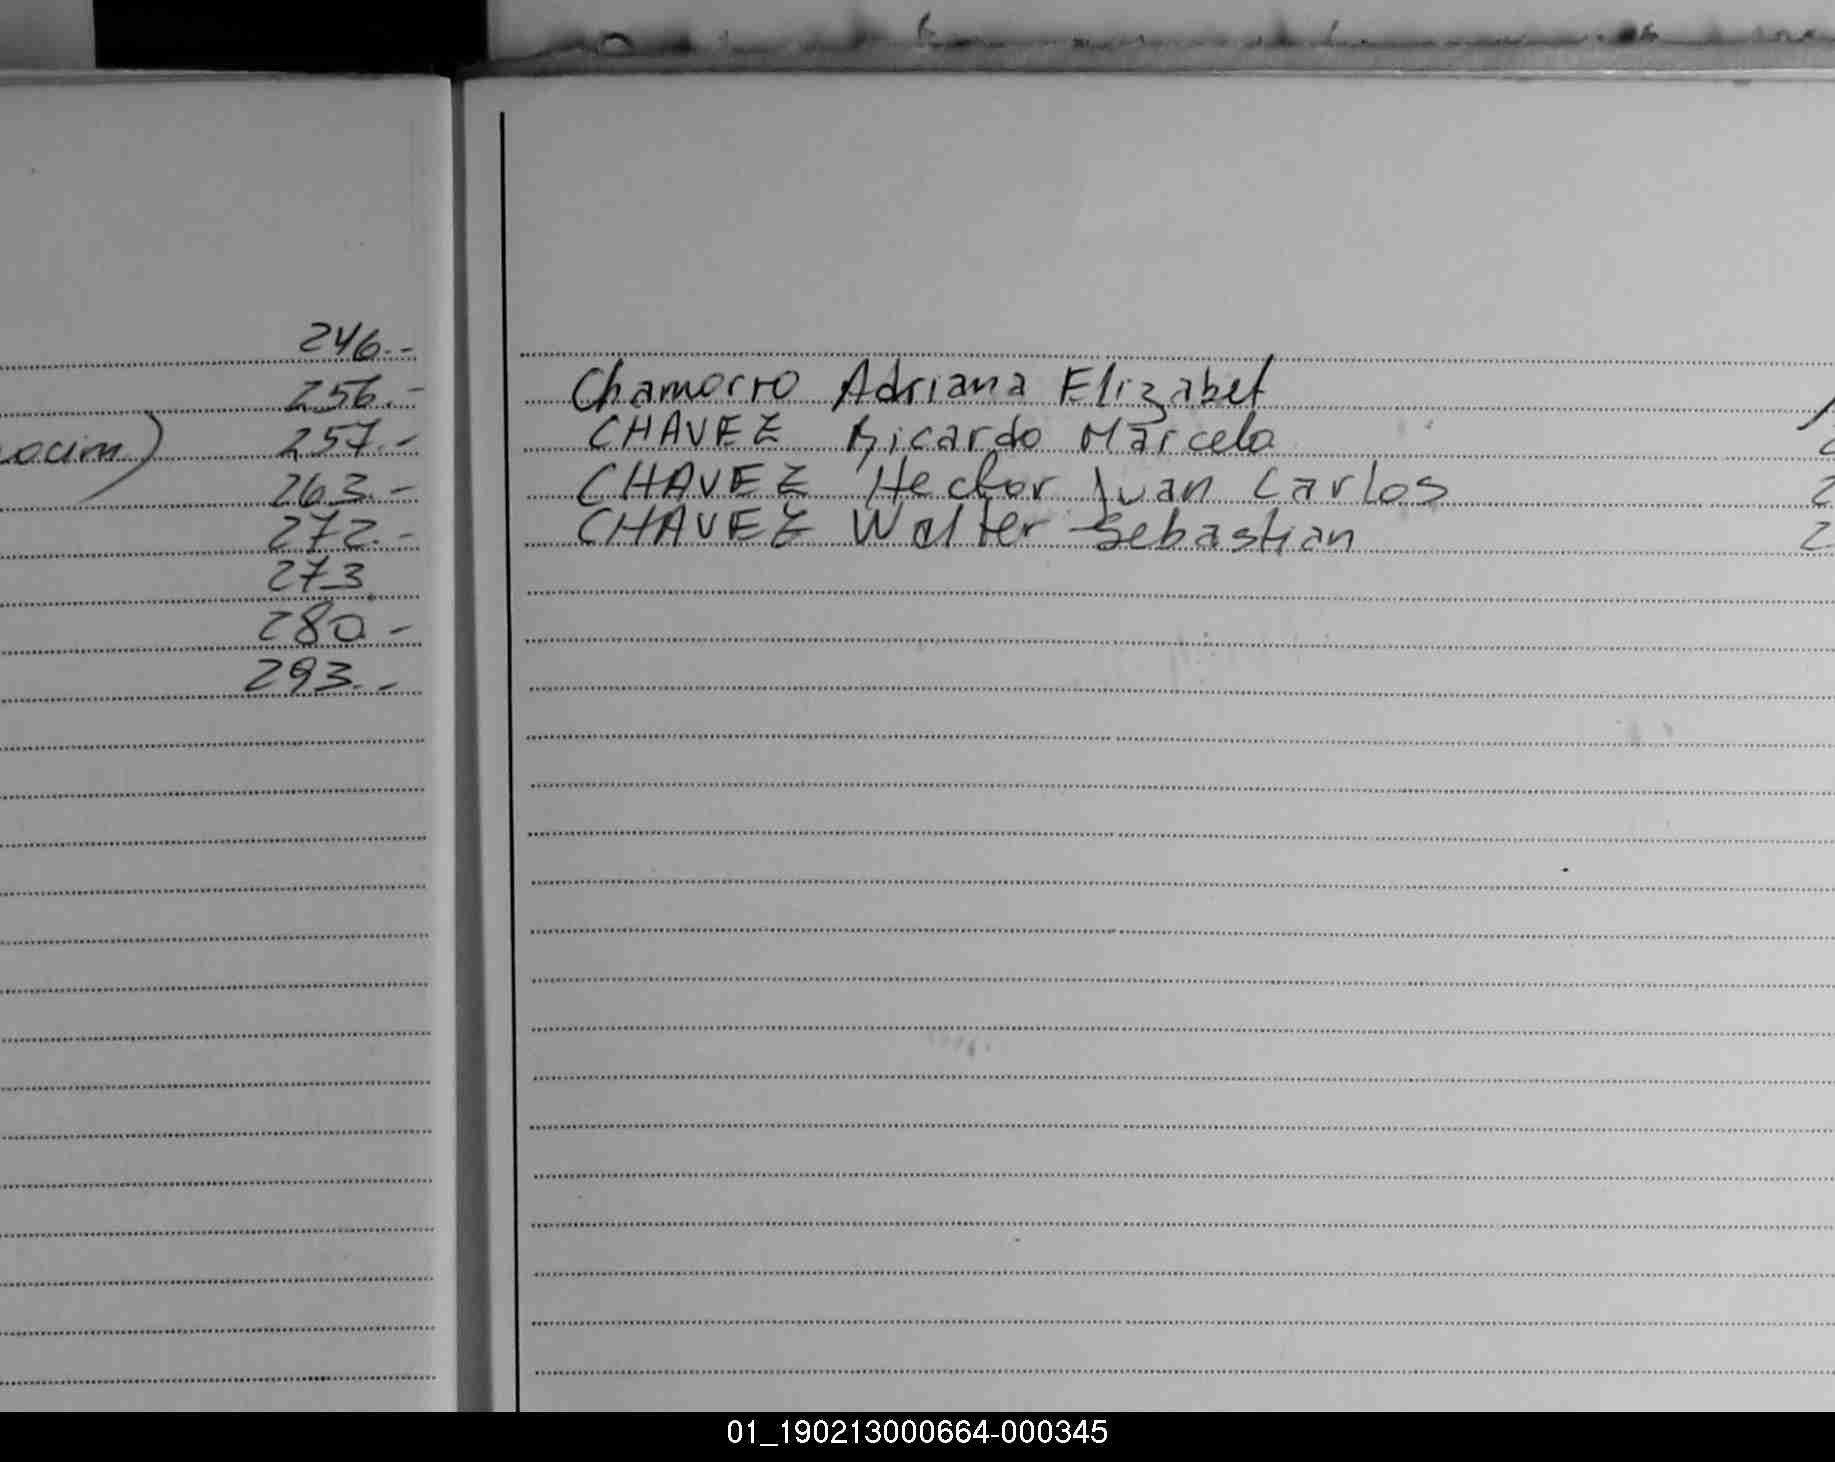 246.-
256.-
257.-
263.-
272.-
273
280.-
293.-
Chamorro Adriana Elizabet
CHAVEZ Ricardo Marcelo
CHAVEZ Hector Juan Carlos
CHAVEZ Walter Sebastian
01_190213000664-000345